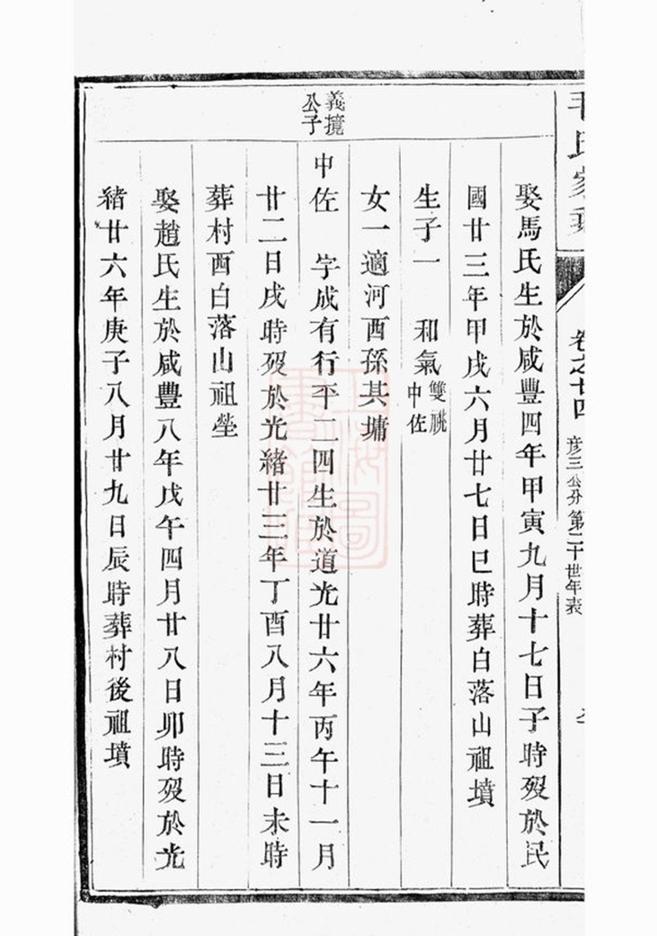 毛氏家乘
卷之廿四 彦三公分第二十世年表
娶馬氏生於咸豐四年甲寅九月十七日子時歿於民
國廿三年甲戌六月廿七日巳時葬白落山祖墳
生子一 和氣 雙祧中佐
女一適河西孫其墉
義攬公子
中佐 字成有行平二四生於道光廿六年丙午十一月
廿二日戌時歿於光緒廿三年丁酉八月十三日未時
葬村西白落山祖塋
娶趙氏生於咸豐八年戊午四月廿八日卯時歿於光
緒廿六年庚子八月廿九日辰時葬村後祖墳